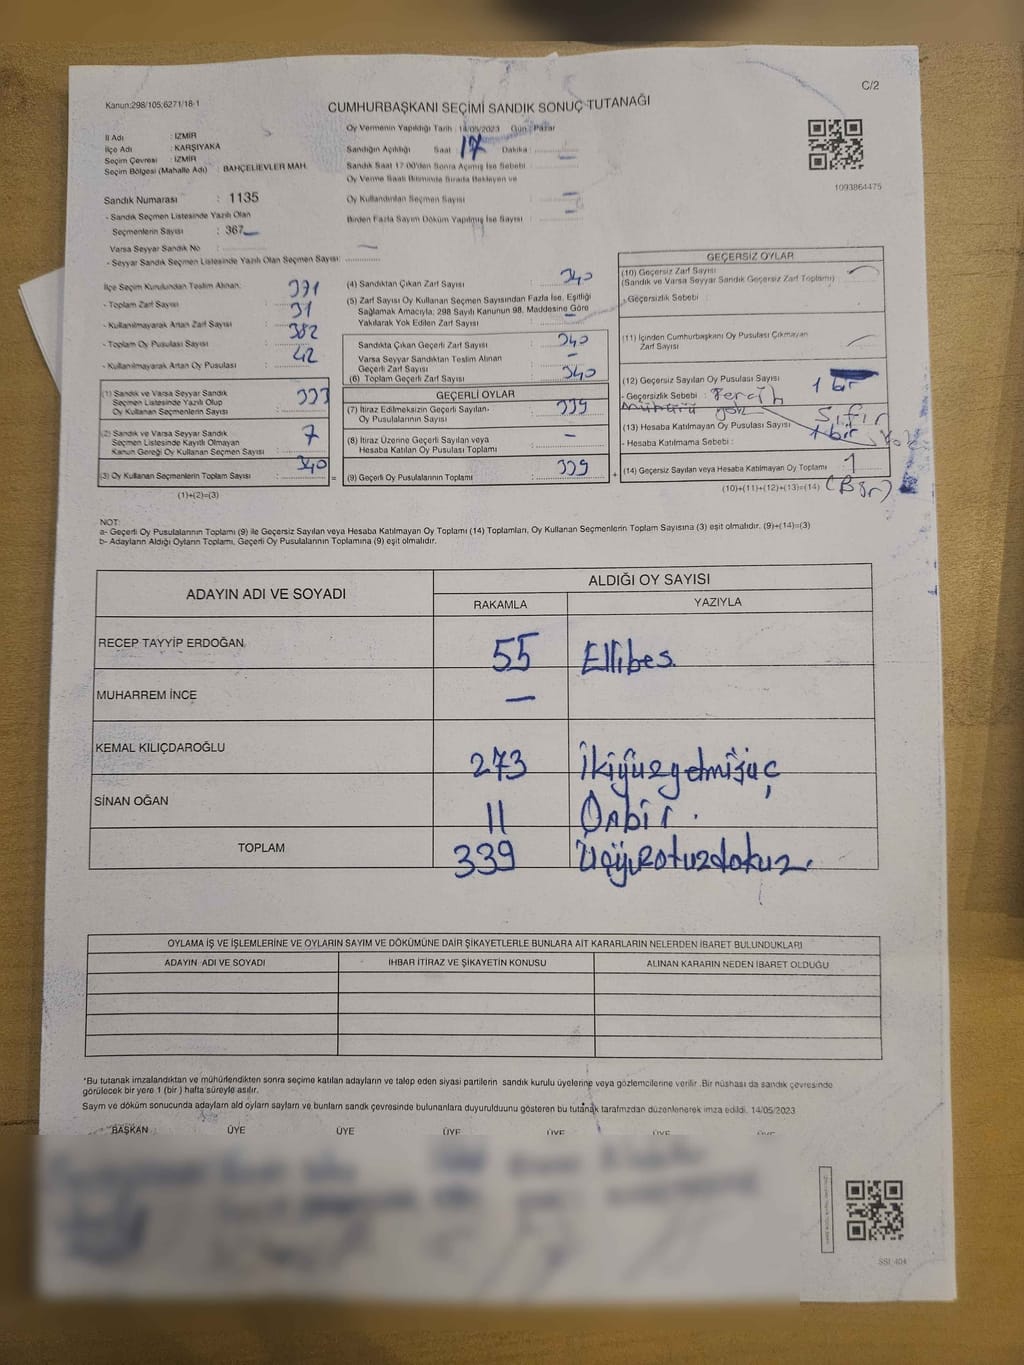 C/2
Kanun:298/105,6271/18-1
CUMHURBAŞKANI SEÇİMİ SANDIK SONUÇ TUTANAĞI
İl Adı : İZMİR
İlçe Adı : KARŞIYAKA
Seçim Çevresi : İZMİR
Seçim Bölgesi (Mahalle Adı) : BAHÇELİEVLER MAH.
Oy Vermenin Yapıldığı Tarih : 14/05/2023 Gün : Pazar
Sandığın Açıldığı Saat : 17 Dakika : –
Sandık Saat 17:00'den Sonra Açılmış İse Sebebi :
Oy Verme Saati Bitiminde Sırada Bekleyen ve
Oy Kullandırılan Seçmen Sayısı : –
Birden Fazla Sayım Döküm Yapılmış İse Sayısı : –
1093864475
Sandık Numarası : 1135
- Sandık Seçmen Listesinde Yazılı Olan
Seçmenlerin Sayısı : 367
Varsa Seyyar Sandık No : –
- Seyyar Sandık Seçmen Listesinde Yazılı Olan Seçmen Sayısı:
İlçe Seçim Kurulundan Teslim Alınan:
- Toplam Zarf Sayısı : 371
- Kullanılmayarak Artan Zarf Sayısı : 31
- Toplam Oy Pusulası Sayısı : 382
- Kullanılmayarak Artan Oy Pusulası : 42
(1) Sandık ve Varsa Seyyar Sandık
Seçmen Listesinde Yazılı Olup
Oy Kullanan Seçmenlerin Sayısı : 333
(2) Sandık ve Varsa Seyyar Sandık
Seçmen Listesinde Kayıtlı Olmayan
Kanun Gereği Oy Kullanan Seçmen Sayısı : 7
(3) Oy Kullanan Seçmenlerin Toplam Sayısı : 340
(1)+(2)=(3)
(4) Sandıktan Çıkan Zarf Sayısı : 340
(5) Zarf Sayısı Oy Kullanan Seçmen Sayısından Fazla İse, Eşitliği
Sağlamak Amacıyla; 298 Sayılı Kanunun 98. Maddesine Göre
Yakılarak Yok Edilen Zarf Sayısı : –
Sandıkta Çıkan Geçerli Zarf Sayısı : 340
Varsa Seyyar Sandıktan Teslim Alınan
Geçerli Zarf Sayısı : –
(6) Toplam Geçerli Zarf Sayısı : 340
GEÇERLİ OYLAR
(7) İtiraz Edilmeksizin Geçerli Sayılan
Oy Pusulalarının Sayısı : 339
(8) İtiraz Üzerine Geçerli Sayılan veya
Hesaba Katılan Oy Pusulası Toplamı : –
(9) Geçerli Oy Pusulalarının Toplamı : 339
GEÇERSİZ OYLAR
(10) Geçersiz Zarf Sayısı
(Sandık ve Varsa Seyyar Sandık Geçersiz Zarf Toplamı) : –
- Geçersizlik Sebebi :
(11) İçinden Cumhurbaşkanı Oy Pusulası Çıkmayan
Zarf Sayısı : –
(12) Geçersiz Sayılan Oy Pusulası Sayısı : 1 bir
- Geçersizlik Sebebi : Tercih
mühürü yok
(13) Hesaba Katılmayan Oy Pusulası Sayısı : Sıfır
1 bir
- Hesaba Katılmama Sebebi : Yok
(14) Geçersiz Sayılan veya Hesaba Katılmayan Oy Toplamı : 1
(10)+(11)+(12)+(13)=(14) (Bir)
NOT:
a- Geçerli Oy Pusulalarının Toplamı (9) ile Geçersiz Sayılan veya Hesaba Katılmayan Oy Toplamı (14) Toplamları, Oy Kullanan Seçmenlerin Toplam Sayısına (3) eşit olmalıdır. (9)+(14)=(3)
b- Adayların Aldığı Oyların Toplamı, Geçerli Oy Pusulalarının Toplamına (9) eşit olmalıdır.
ADAYIN ADI VE SOYADI
ALDIĞI OY SAYISI
RAKAMLA YAZIYLA
RECEP TAYYİP ERDOĞAN 55 Ellibeş.
MUHARREM İNCE –
KEMAL KILIÇDAROĞLU 273 İkiyüzyetmişüç
SİNAN OĞAN 11 Onbir.
TOPLAM 339 Üçyüzotuzdokuz.
OYLAMA İŞ VE İŞLEMLERİNE VE OYLARIN SAYIM VE DÖKÜMÜNE DAİR ŞİKAYETLERLE BUNLARA AİT KARARLARIN NELERDEN İBARET BULUNDUKLARI
ADAYIN ADI VE SOYADI İHBAR İTİRAZ VE ŞİKAYETİN KONUSU ALINAN KARARIN NEDEN İBARET OLDUĞU
*Bu tutanak imzalandıktan ve mühürlendikten sonra seçime katılan adayların ve talep eden siyasi partilerin sandık kurulu üyelerine veya gözlemcilerine verilir .Bir nüshası da sandık çevresinde
görülecek bir yere 1 (bir ) hafta süreyle asılır.
Sayım ve döküm sonucunda adayların ald oyların sayları ve bunların sandk çevresinde bulunanlara duyurulduunu gösteren bu tutanak tarafmzdan düzenlenerek imza edildi. 14/05/2023
BAŞKAN ÜYE ÜYE ÜYE ÜYE ÜYE ÜYE
SSI: 404